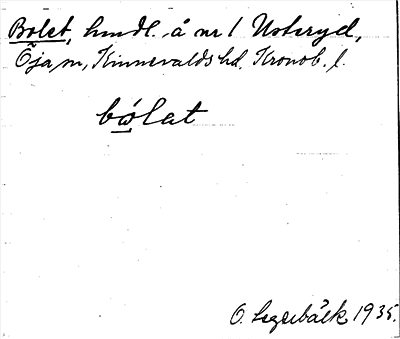 Bolet, hmdl. å nr 1 Notteryd,
Öja sn, Kinnevalds hd. Kronob. l.
bólat
O. Seger­bäck 1935.